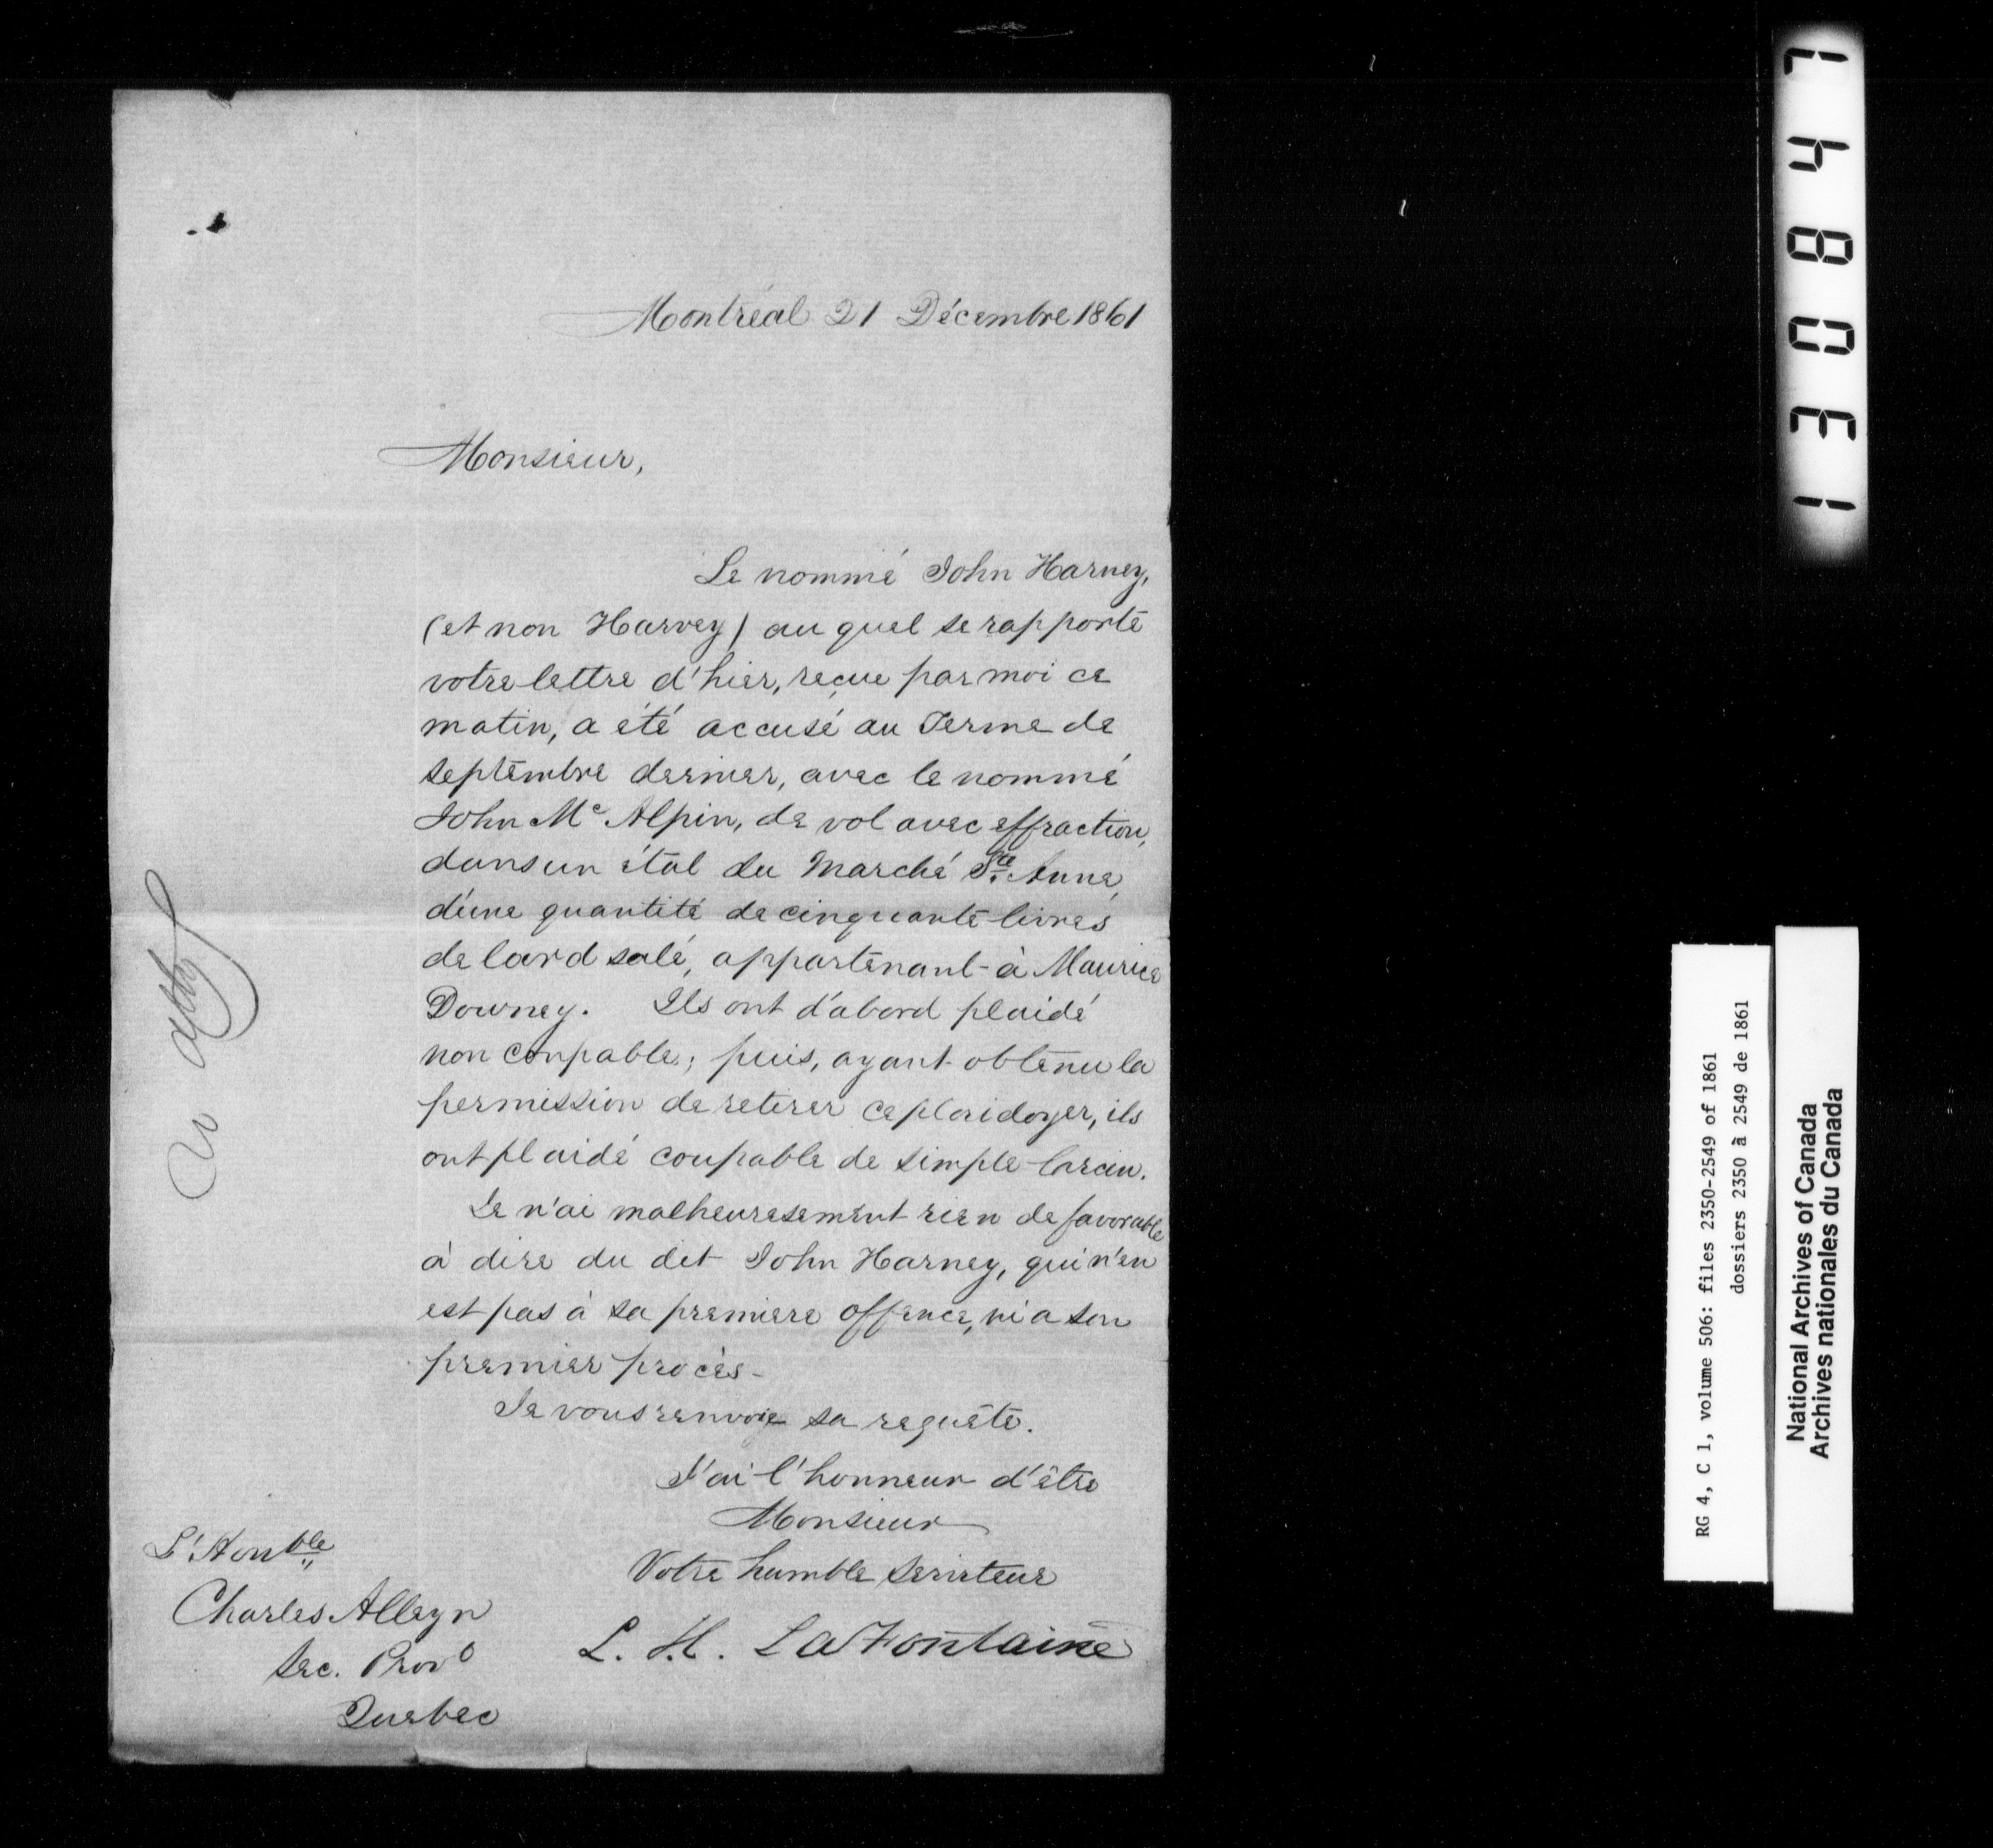 Montréal 21 Décembre 1861
Monsieur,
Le nommé John Harney,
(et non Harvey) au quel se rapporte
votre lettre d'hier, reçue par moi ce
matin, a été accusé au Terme de
septembre dernier, avec le nommé
John Mc Alpin, de vol avec effraction,
dans un étal du Marché Ste Anne,
d'une quantité de cinquante livres
de lard salé, appartenant à Maurice
Downey. Ils ont d'abord plaidé
non coupable; puis, ayant obtenu la
permission de retirer ce plaidoyer, ils
ont plaidé coupable de simple larcin.
Je n'ai malheuresement rien de favorable
à dire du dit John Harney, qui n'en
est pas à sa premiere offence, ni a son
premier procès-
Je vous renvoie sa requête.
J'ai l'honneur d'être
Monsieur
Votre humble serviteur
L. H. LaFontaine
L'Honble
Charles Alleyn
Sec. Provl
Quebec
1 3 0 8 4 7
RG 4, C 1, volume 506: files 2350-2549 of 1861
dossiers 2350 à 2549 de 1861
National Archives of Canada
Archives nationales du Canada